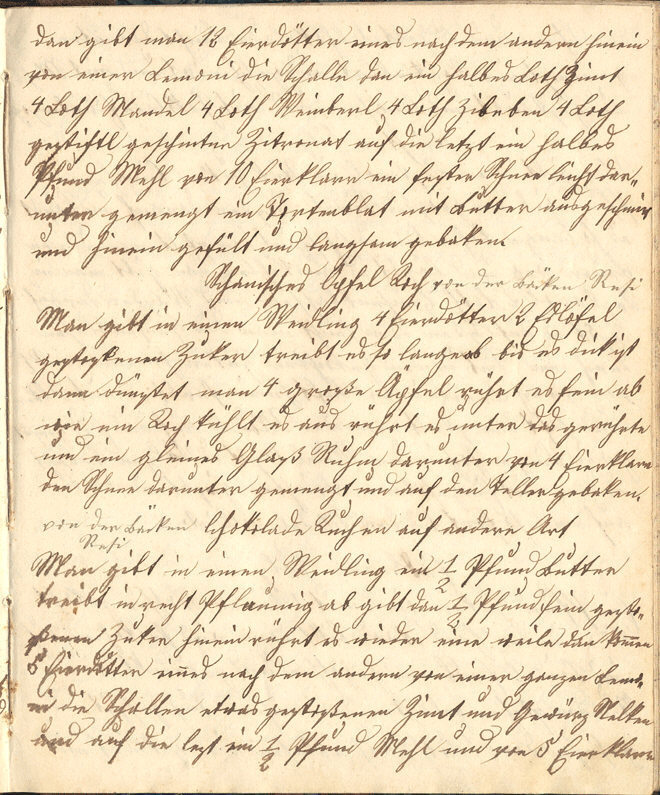 dan gibt man 12 Eierdötter eines nach dem andern hinein
von einer Lemoni die Schalle dan ein halbes Loth Zimt
4 Loth Mandel 4 Loth Weinberl 4 Loth Zibeben 4 Loth
gestiftl geschnitten Zitronat auf die letzt ein halbes
Pfund Mehl von 10 Eierklarr ein fester Schnee leicht dar„
unter gemengt ein Tortenblat mit Butter ausgeschmirt
und hinein gefült und langsam gebaken.
Spänisches Apfel Koch von der Bäcken Resi
Man gibt in einen Weidling 4 Eierdötter 2 Eßlöfel
gestoßenen Zuker treibt es so lange ab bis es dick ist
dann dünstet man 4 große Äpfel rührt es fein ab
wie ein Koch kühlt es aus rührt es unter das gerührte
und ein gleines Glaß Ruhm darunter von 4 Eierklarr
den Schnee darunter gemengt und auf den Teller gebaken.
von der Bäcken Schokolade Kuchen auf andere Art
Resi
Man gibt in einen Weidling ein 1/2 Pfund Butter
treibt in recht Pflaumig ab gibt dan 1/2 Pfund fein gesto„
ßenen Zuker hinein rührt es wieder eine weile dan kommen
5 Eierdötter eines nach dem andern von einer ganzen Lemo„
ni die Schallen etwas gestoßenen Zimt und Gewürz Nelken
und auf die lezt ein 1/2 Pfund Mehl und von 5 Eierklarr